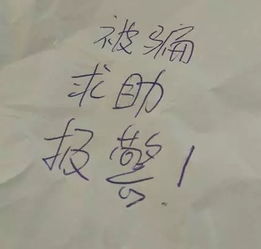 被骗
求助
报警！